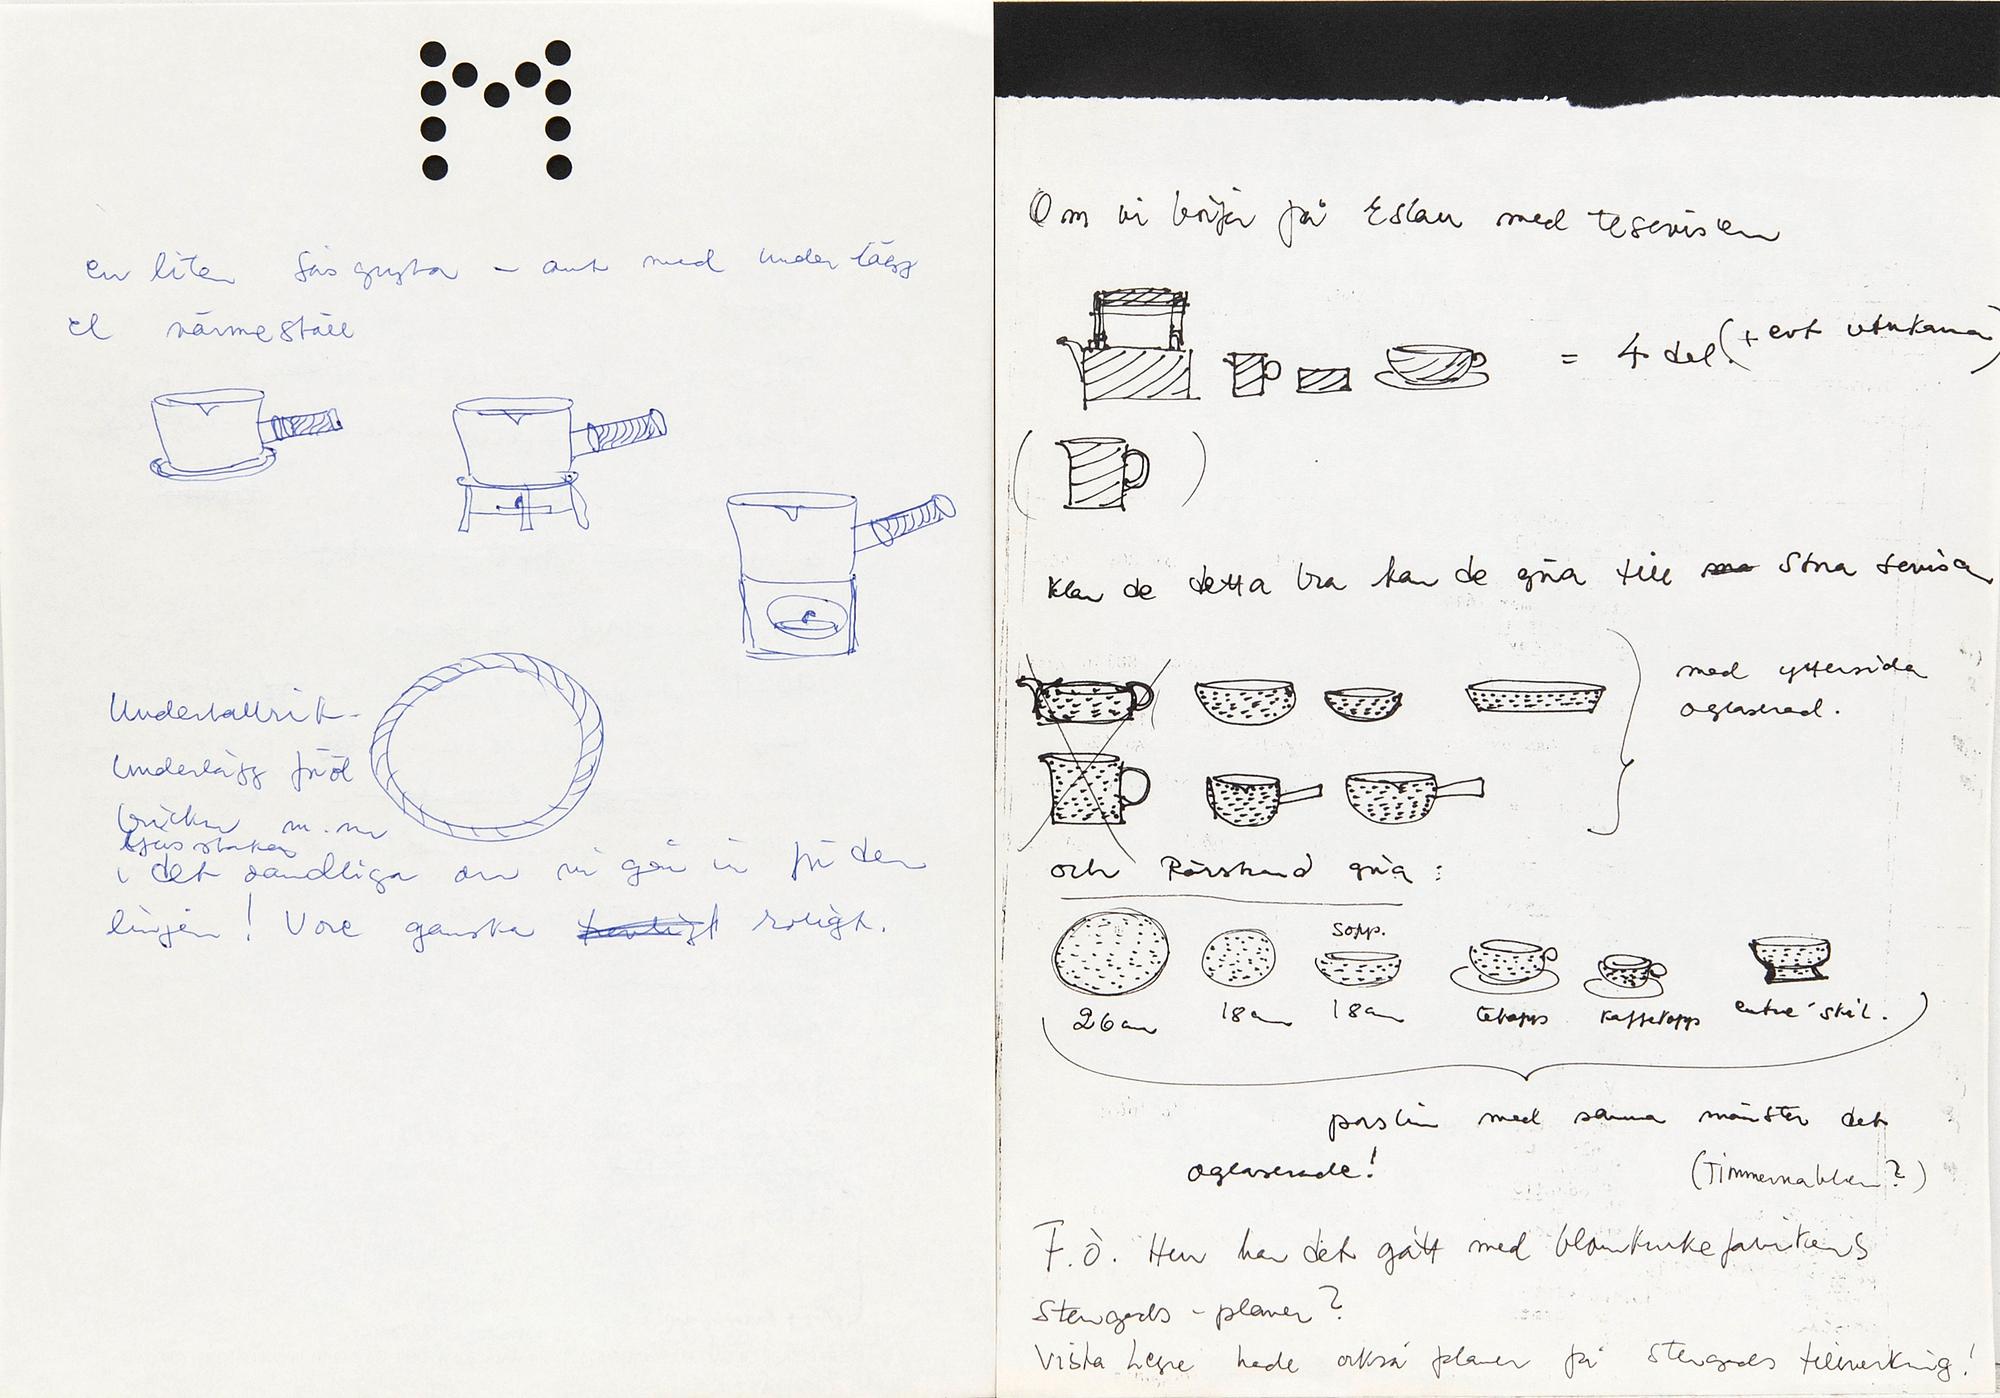 M
en liten såsgryta – ant med underlägg
el värmeställ
Underlägg för
brickor m.m
ljusstakar
i det oändliga om vi går in på den
linjen! Vore ganska roligt.
Om vi börjar på Eslau med teservisen
= 4 del. (+ evt vattenkanna)
Klar de detta bra kan de göra till stora servisen
med yttersida
oglaserad.
och Rörstrand göra:
sopp.
26 cm 18 cm 18 cm tekopp kaffekopp entré skål.
porslin med samma mönster det
oglaserade!
(Timmernabben?)
F.Ö. Hur har det gått med blomkrukefabrikens
Stengods-planer?
Vista hegre hade också planer på stengods tillverkning!